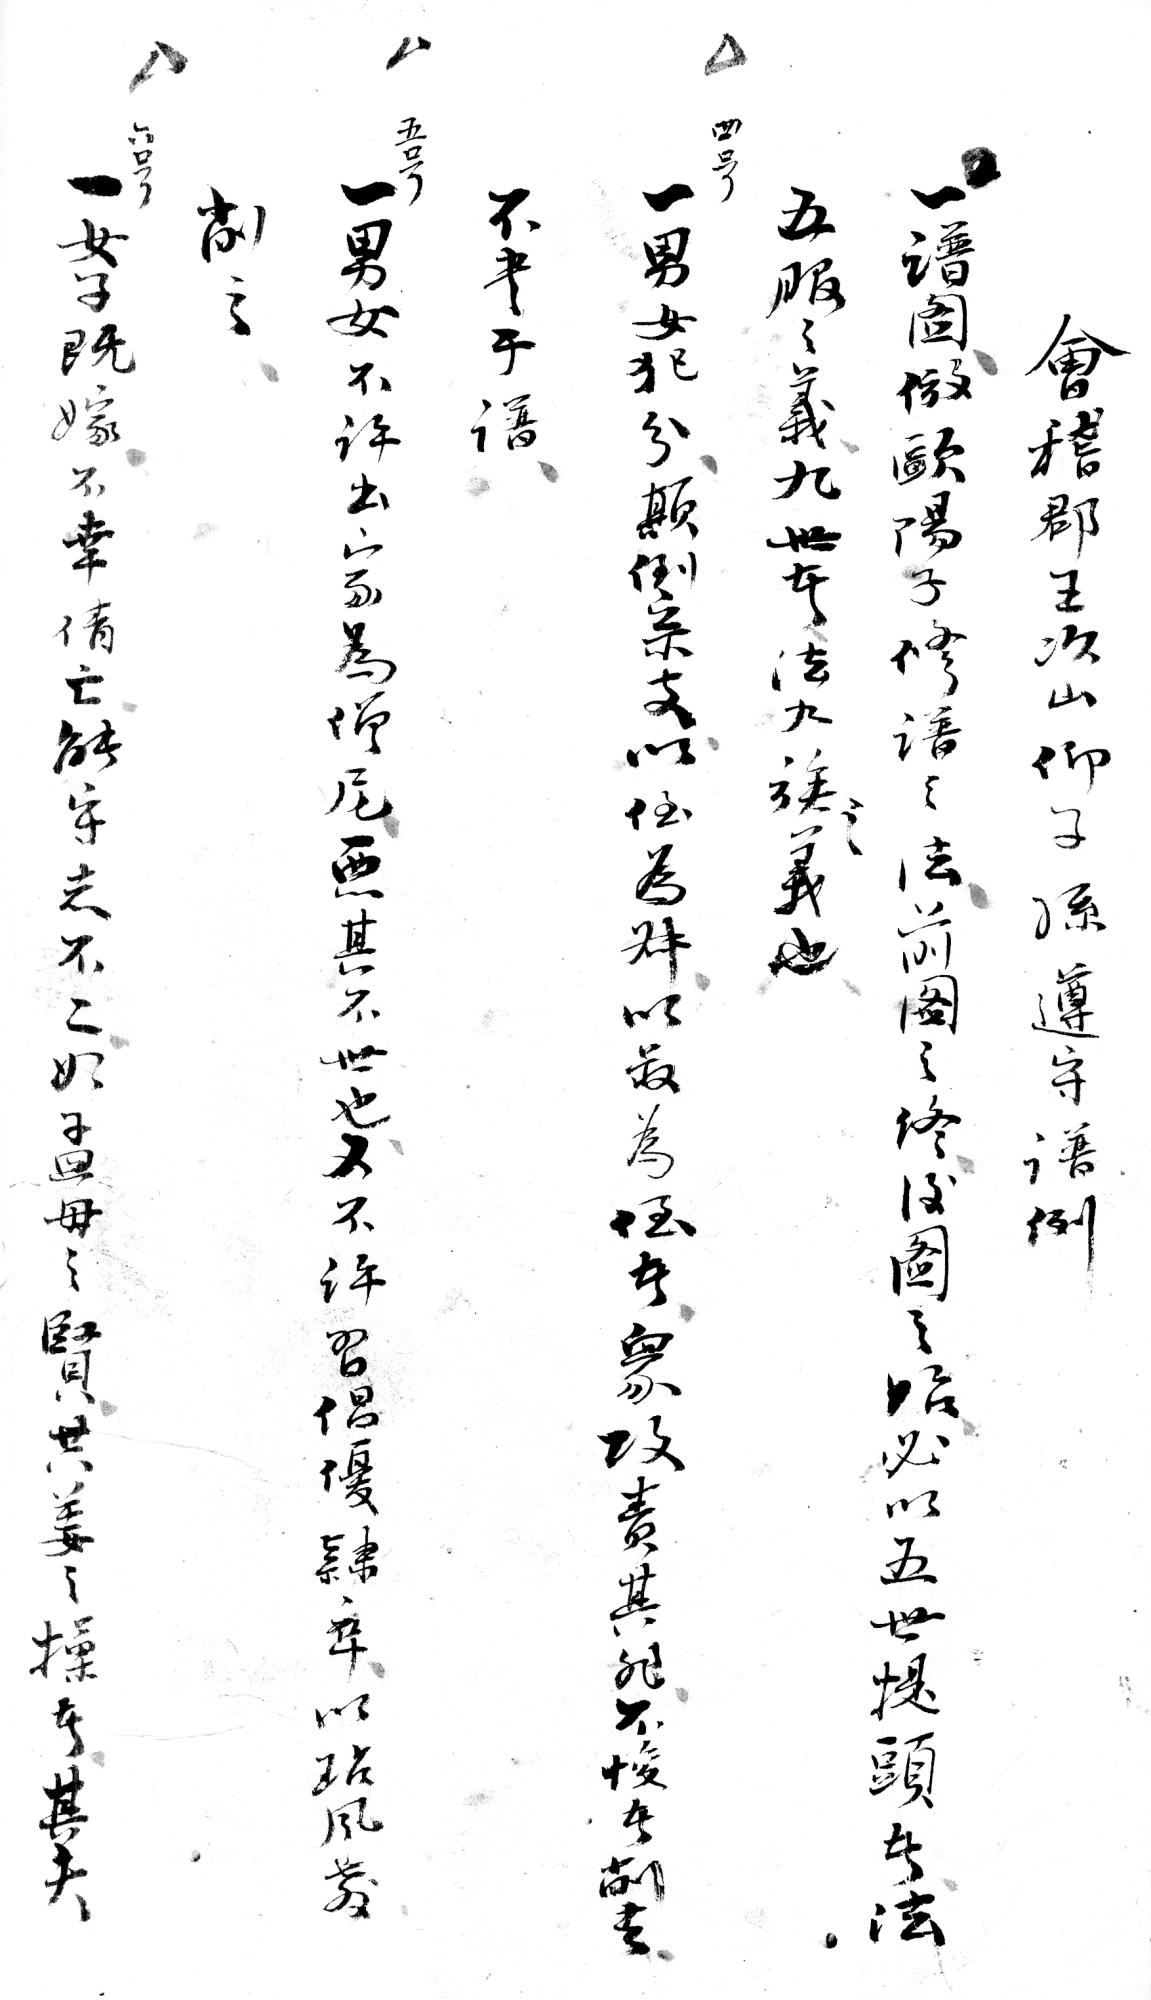 會稽郡王次山仰子孫遵守譜例
一譜图倣歐陽子修譜之法前图之終後图之始必以五世提頭者法
五服之義九世者法九族之義也
四号
一男女犯分顛倒宗支以侄為叔以叔為侄者衆攻責其非不悛者削去
不書于譜
五号
一男女不許出家為僧尼惡其不世也又不許習倡優隸卒以玷風教
削之
六号
一女子既嫁不幸倩亡能守志不二如孟母之賢共姜之操者其夫